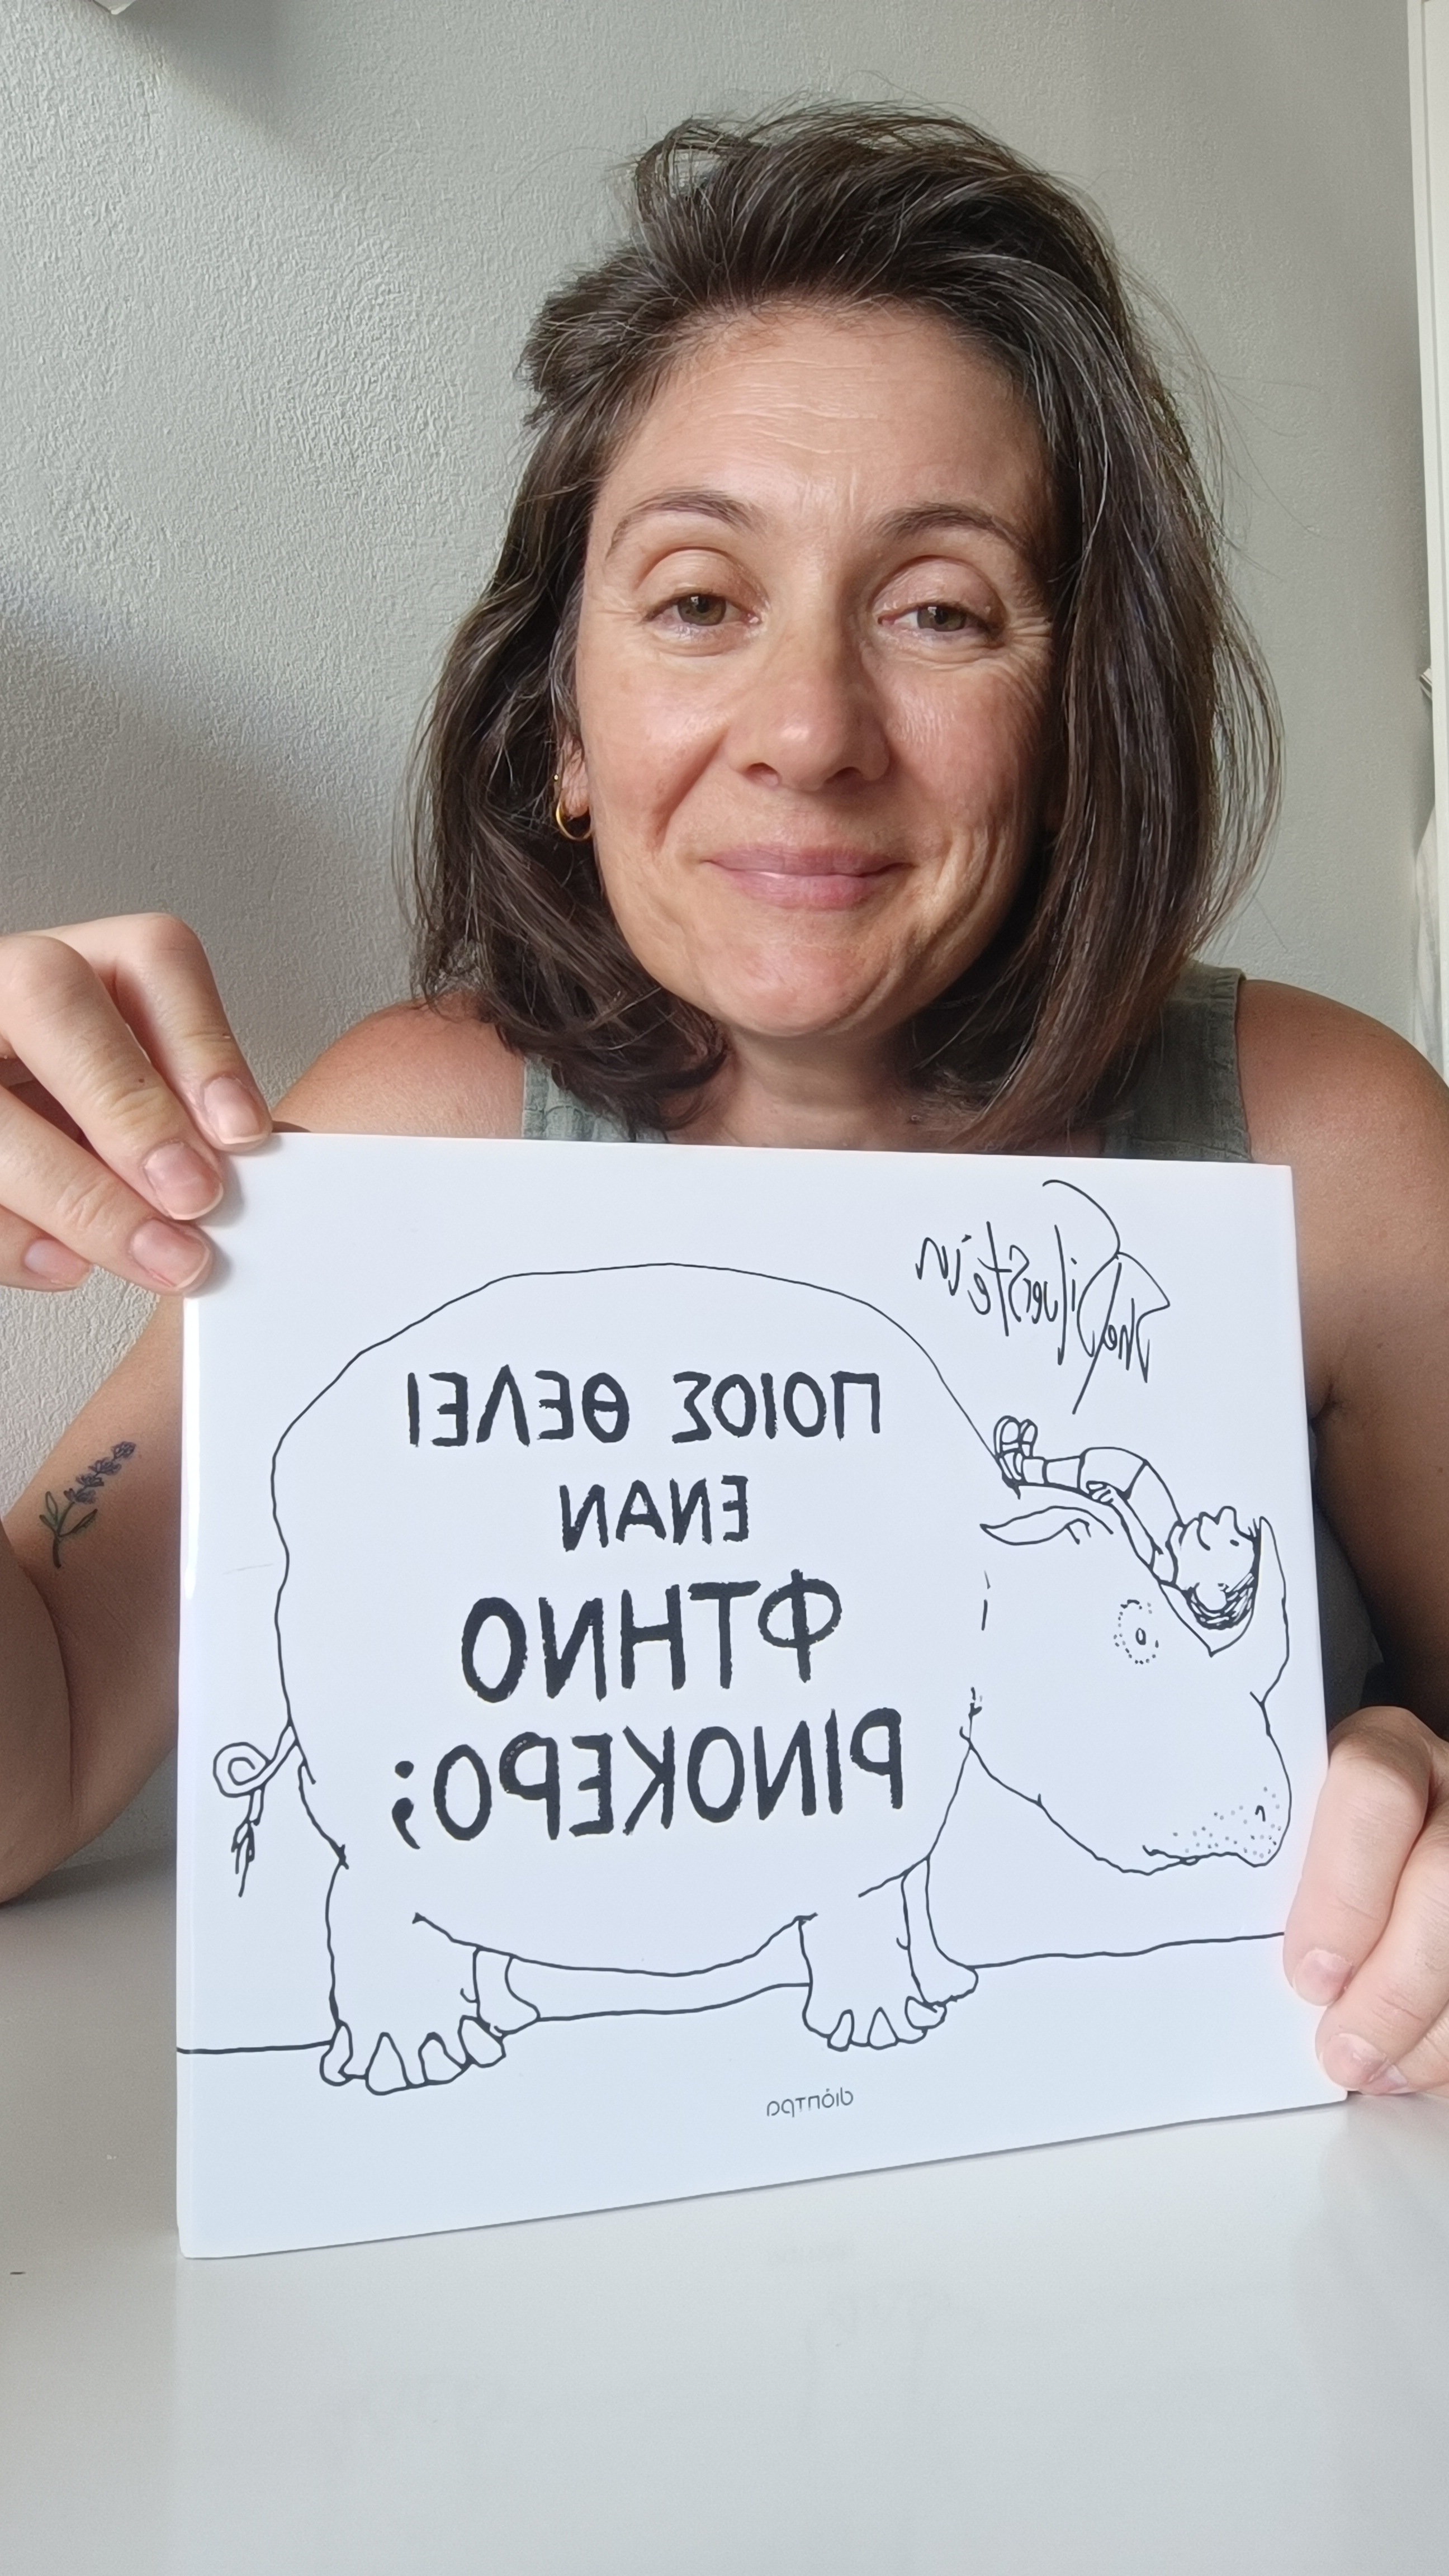 Shel Silverstein
ΠΟΙΟΣ ΘΕΛΕΙ
ΕΝΑΝ
ΦΤΗΝΟ
ΡΙΝΟΚΕΡΟ;
διόπτρα